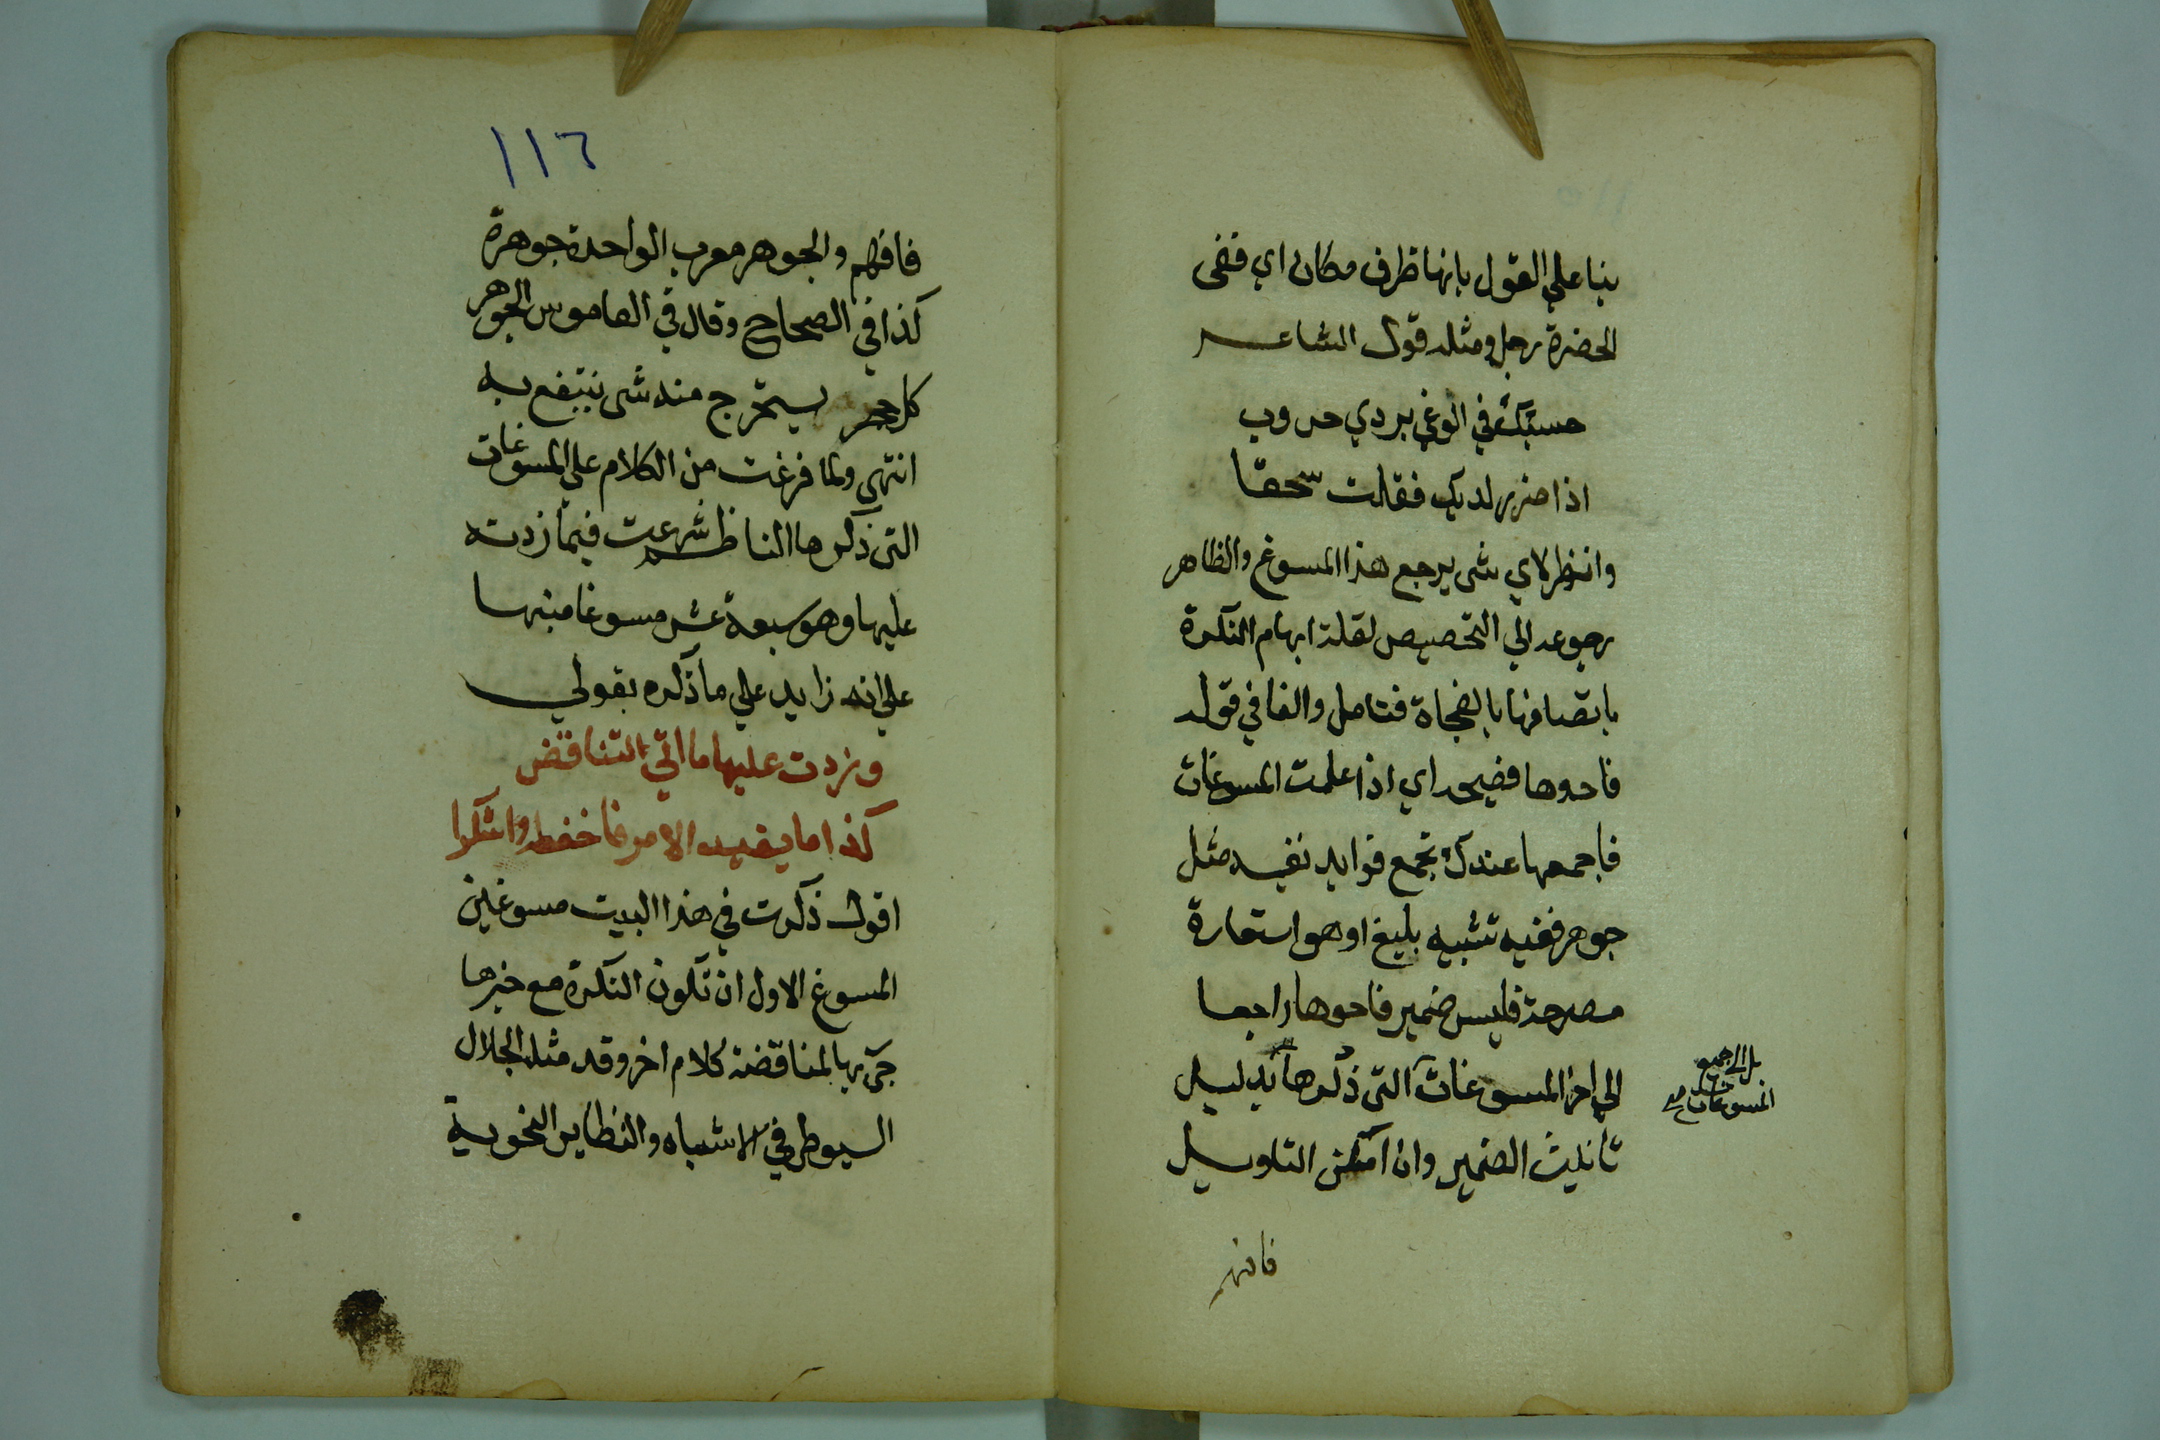 بنا علي القول بانها ظرف مكان اي ففى
الحضرة رجل ومثله قول الشاعر
حسبتك في الوغي بردي حروب
اذا خور لديك فقلت سحقا
وانظر لاي شى يرجع هذا المسوغ والظاهر
رجوعه الي التخصيص لقلة ابهام النكرة
باتصافها بالفجاة فتامل والفا في قوله
فاحوها فصيحه اي اذا علمت المسوغات
فاجمعها عندك تجمع فوايد نفيسه مثل
جوهر ففيه تشبيه بليغ او هو استعارة
مصرحة فليس ضمير فاحوها راجعا
الي اخر المسوغات التى ذكرها بدليل
تانيث الضمير وان امكن التاويل
بل الي جميع
المسوغات صح
فافهم
١١٦
فافهم والجوهر معرب الواحدة جوهرة
كذا في الصحاح وقال في القاموس الجوهر
كل حجر يستخرج منه شى ينتفع به
انتهي ولما فرغت من الكلام علي المسوغات
التى ذكرها الناظم شرعت فيما زدته
عليها وهو سبعة عشر مسوغا منبها
علي انه زايد علي ما ذكره بقولي
وزدت عليها ما اتي التناقض
كذا ما يفيد الامر فاحفظ واشكرا
اقول ذكرت في هذا البيت مسوغين
المسوغ الاول ان تكون النكرة مع خبرها
جي بها لمناقضة كلام اخر وقد مثله الجلال
السيوطي في الاشباه والنظاير النحوية